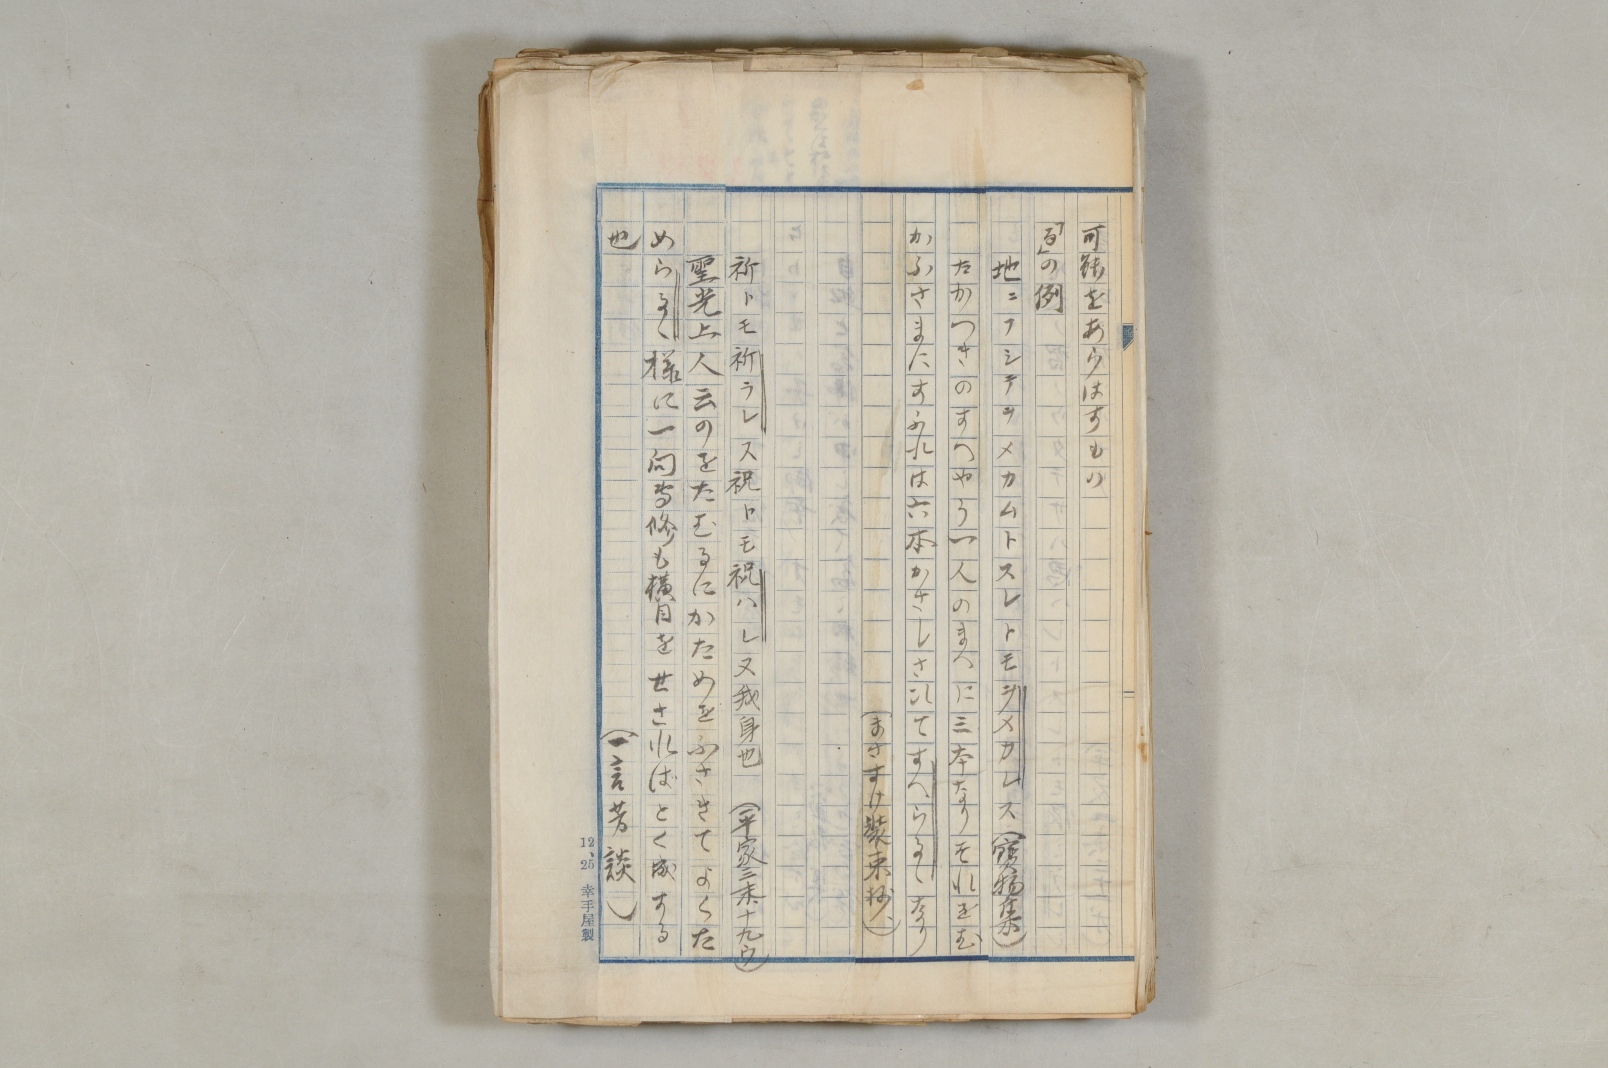 可能をあらはすもの
「る」の例
地ニフシテヲメカムトスレトモヲメカレス（寶物集）
たかつきのすへやう一人のまへに三本なりそれをむ
かふさまにすふれは六本かさしされてすへらるゝなり
（まさすけ裝束抄、）
祈トモ祈ラレス祝トモ祝ハレ又我身也　（平家三末十九ウ）
聖光上人云のをたむるにかためをふさきてよくた
めらるゝ様に一向専修も横目をせさればとく成する
也　（一言芳談）
12、25 幸手屋製